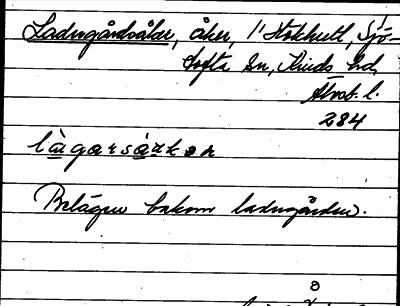 Ladugårdsåker, åker, 1/1 Stokhult, Sjö-
tofta Sn, Kinds Hd,
Älvsb. l.
284
làgarsàrkər
Belägen bakom ladugården.